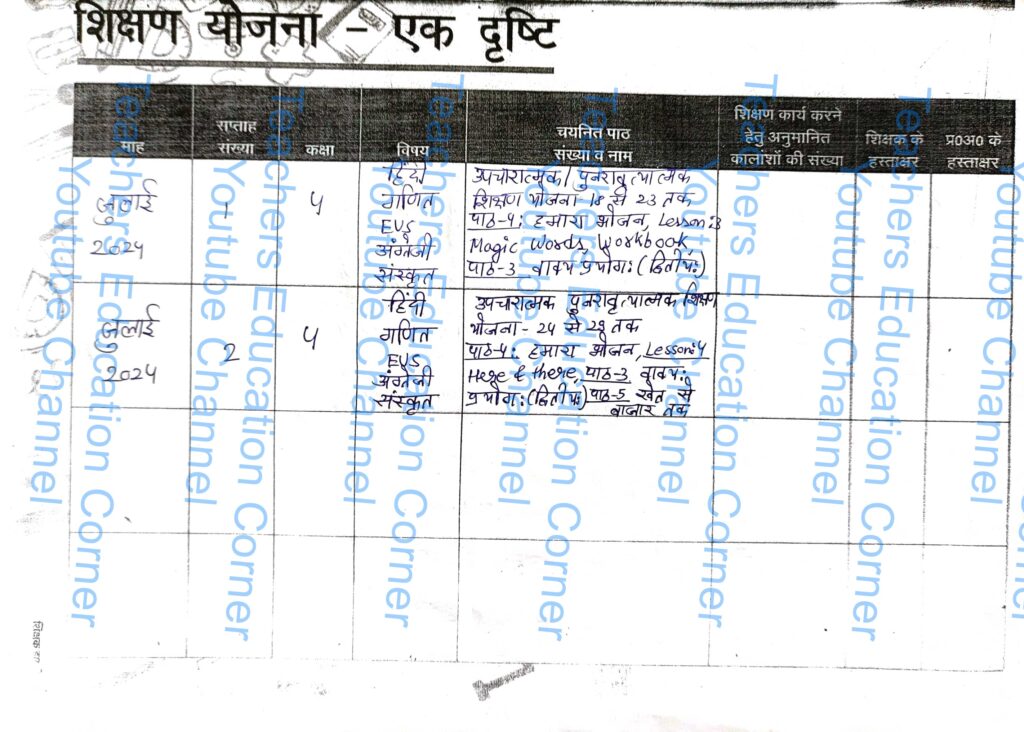 शिक्षण योजना - एक दृष्टि
माह
सप्ताह
संख्या
कक्षा
विषय
चयनित पाठ
संख्या व नाम
शिक्षण कार्य करने
हेतु अनुमानित
कालांशों की संख्या
शिक्षक के
हस्ताक्षर
प्र०अ० के
हस्ताक्षर
जुलाई
2024
1
4
हिंदी
गणित
EVS
अंग्रेजी
संस्कृत
उपचारात्मक/पुनरावृत्यात्मक
शिक्षण योजना 18 से 23 तक
पाठ-4: हमारा भोजन, Lesson:3
Magic Words, Workbook,
पाठ-3 वाक्य प्रयोग: (द्वितीय:)
जुलाई
2024
2
4
हिंदी
गणित
EVS
अंग्रेजी
संस्कृत
उपचारात्मक पुनरावृत्यात्मक शिक्षण
योजना - 24 से 28 तक
पाठ-4: हमारा भोजन, Lesson:4
Here & there, पाठ-3 वाक्य:
प्रयोग: (द्वितीय:) पाठ-5 खेत से
बाजार तक
Teachers Education Corner
Youtube Channel
Teachers Education Corner
Youtube Channel
Teachers Education Corner
Youtube Channel
Teachers Education Corner
Youtube Channel
Teachers Education Corner
Youtube Channel
Teachers Education Corner
Youtube Channel